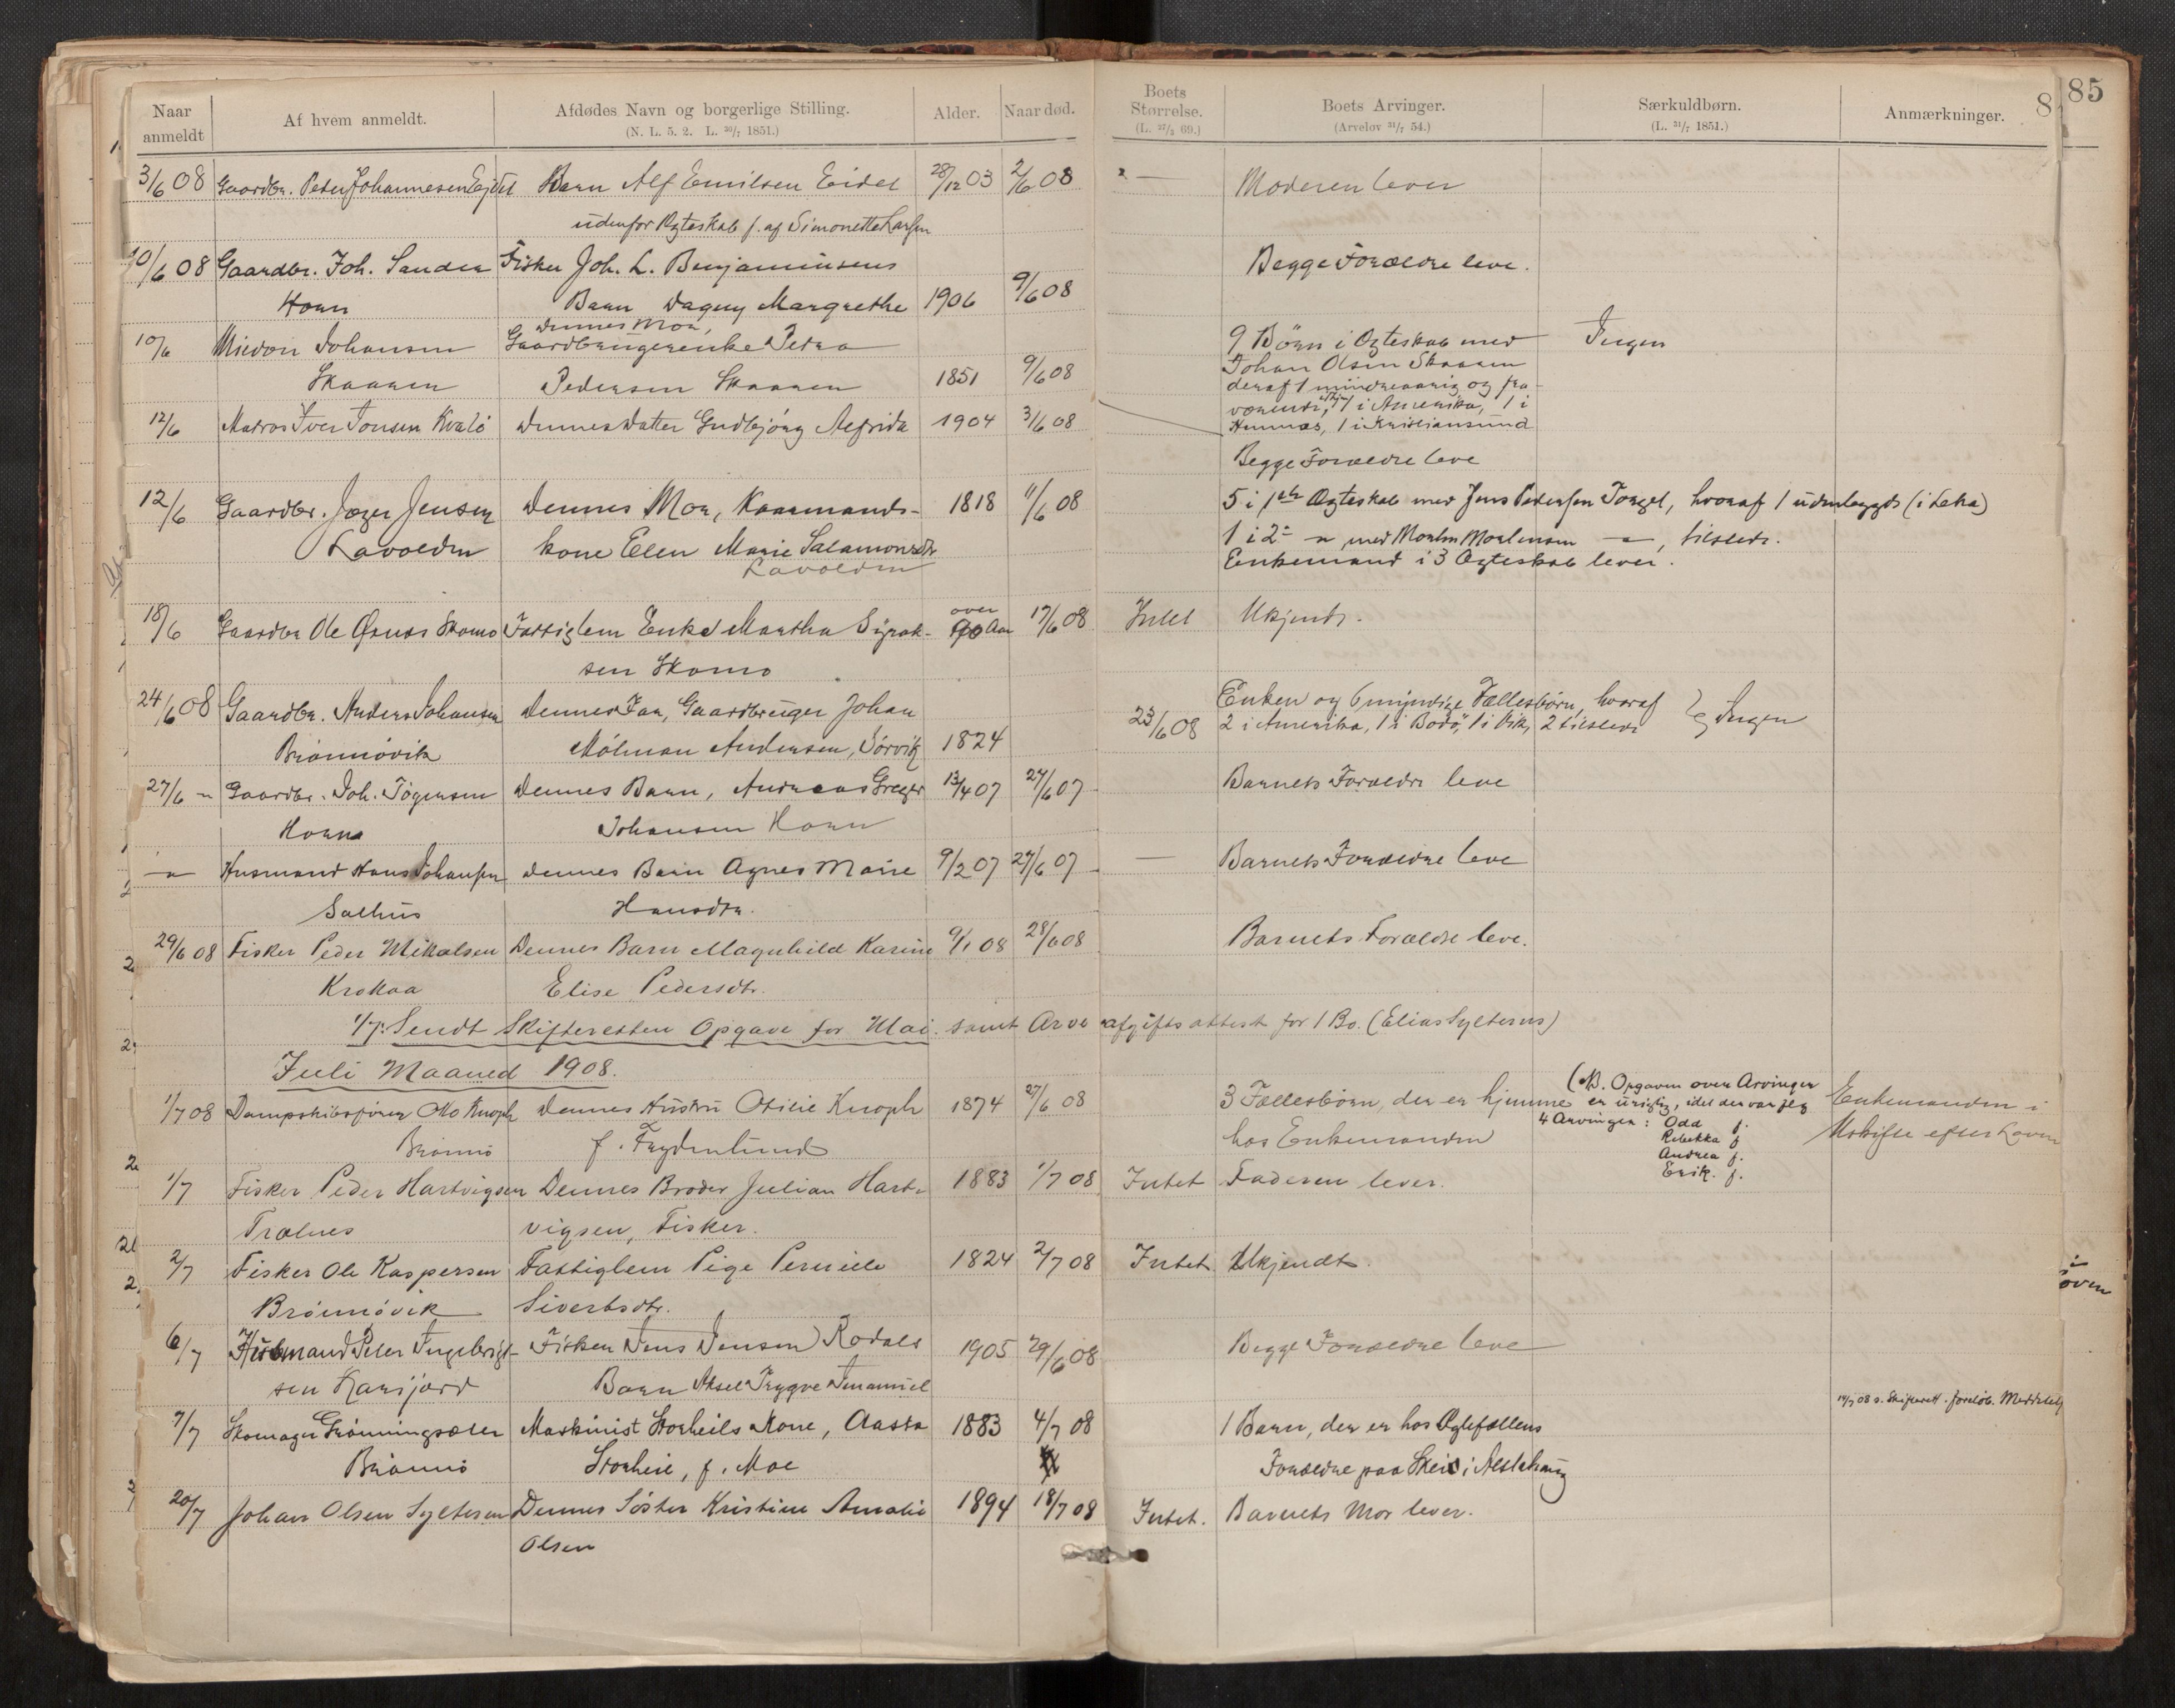 Naar anmeldt
Af hvem anmeldt.
Afdødes Navn og borgerlige Stilling.
(N. L. 5. 2. L. 30/7 1851.)
Alder.
Naar død.
Boets Størrelse.
(L. 27/3 69.)
Boets Arvinger.
(Arvelov 31/7 54.)
Særkuldbørn.
(L. 31/7 1851.)
Anmærkninger.
8
85
3/6 08 Gaardbr. Peter Johannesen Eidet Barn Alf Emilsen Eidet 28/12 03 2/6 08 — Moderen lever
udenfor Ægteskab f. af Simonette Larsen
10/6 08 Gaardbr. Joh. Sander Fisker Joh. L. Benjaminsens Begge Forældre leve.
Horn Barn Dagny Margrethe 1906 9/6 08
Dennes Mor,
10/6 Johansen Gaardbrugerenke Petra 9 Børn i Ægteskab med Ingen
Skaaren Pedersen Skaaren 1851 9/6 08 Johan Olsen Skaaren
deraf 1 mindreaarig og fra-
værende, 1 i Amerika, 1 i
12/6 Matros Iver Jonsen Kvalö Dennes Datter Gudbjörg Alfrida 1904 3/6 08 1 i Kristiansund
Begge Forældre leve
12/6 Gaardbr. Jæger Jensen Dennes Mor, Kaarmands- 1818 11/6 08 5 i 1ste Ægteskab med Jens Pedersen Torget, hvoraf 1 udenbygds (i Leka)
Lavolden kone Elen Marie Salamonsdtr 1 i 2 - " med , tilstede.
Lavolden Enkemand i 3 Ægteskab lever.
18/6 Gaardbr Ole Skomo Fattiglem Enke Martha Syrak- over 90 Aar 17/6 08 Intet Ukjendt.
sen Skomo
24/6 08 Gaardbr. Anders Johansen Dennes Far, Gaardbruger Johan 23/6 08 Enken og 6 myndige Fællesbørn, hvoraf } Ingen
Brønnövik Mölman Andersen, Sörvik 1824 2 i Amerika, 1 i Bodö, 1 i Vik, 2 tilstede
27/6 " Gaardbr. Joh. Jögensen Dennes Barn, Andreas Greger 13/4 07 24/6 07 Barnets Forældre leve
Horn Johansen Horn
" Husmand Hans Johansen Dennes Barn Agnes Marie 9/2 07 24/6 07 — Barnets Forældre leve
Salhus Hansdtr.
29/6 08 Fisker Peder Mikalsen Dennes Barn Magnhild Karine 9/1 08 28/6 08 Barnets Forældre leve.
Krokaa Elise Pedersdtr.
1/7. Sendt Skifteretten Opgave for Mai samt Arveafgiftsattest for 1 Bo. (Elias Sylteren)
Juli Maaned 1908.
1/7 08 Dampskibsfører Otto Knoph Dennes Hustru Otilie Knoph 1874 27/6 08 3 Fællesbörn, der er hjemme
Brønnö f. Frydenlund hos Enkemanden
(NB. Opgaven over Arvinger
er urigtig, idet der var flg
4 Arvinger: Odd f.
Rebekka f
Andrea f.
Erik. f.
Enkemanden i
Uskifte efter Loven
1/7 Fisker Peder Hartvigsen Dennes Broder Julian Hart- 1883 1/7 08 Intet Faderen lever.
Trælnes vigsen, Fisker.
2/7 Fisker Ole Kaspersen Fattiglem Pige Pernille 1824 2/7 08 Intet Ukjendt.
Brönnövik Sivertsdtr.
6/7 Husmand Peter Ingebrigt- Fisker Jens Jensen Rodals 1905 29/6 08 Begge Forældre leve
sen Barn Aksel Trygve Imanuel
14/7 08 s. Skifterett. foreløb. Meddelelse
7/7 Skomager Grönningsæter Maskinist Storheils Kone, Aasta 1883 4/7 08 1 Barn, der er hos Ægtefællens
Brönnö Storheil, f. Moe Forældre paa Skei i Alstahaug
20/7 Johan Olsen Sylteren Dennes Söster Kristine Amalie 1894 18/7 08 Intet. Barnets Mor lever.
Olsen